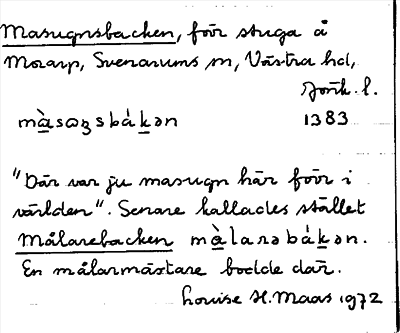 Masugnsbacken, förr stuga å
Morarp, Svenarums sn, Västra hd,
Jönk. l.
màsaꞷŋsbákən 1383
"Där var ju masugn här förr i
världen". Senare kallades stället
Målarebacken màlarəbákən.
En målarmästare bodde där.
Louise H. Maas 1972